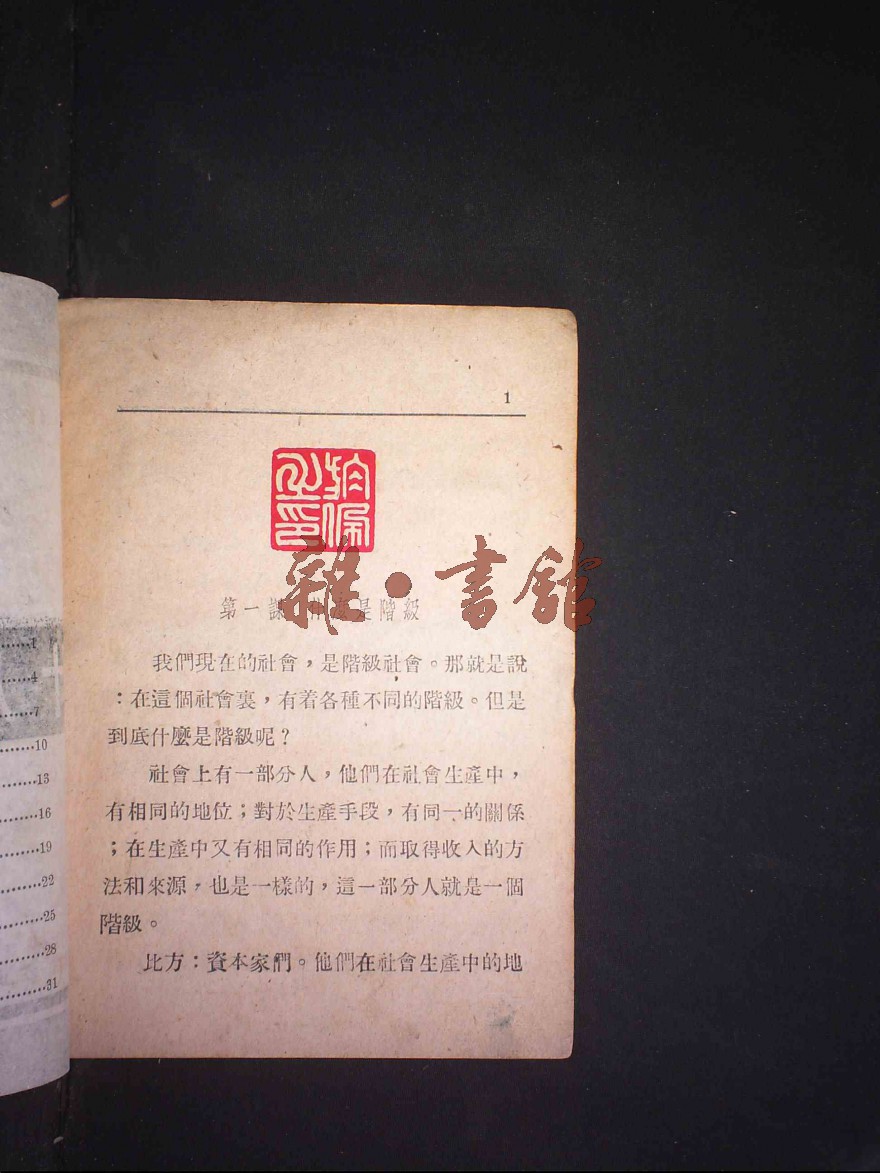 1
雜·書館
第一課 什麼是階級
我們現在的社會，是階級社會。那就是說
：在這個社會裏，有着各種不同的階級。但是
到底什麼是階級呢？
社會上有一部分人，他們在社會生產中，
有相同的地位；對於生產手段，有同一的關係
；在生產中又有相同的作用；而取得收入的方
法和來源，也是一樣的，這一部分人就是一個
階級。
比方：資本家們。他們在社會生產中的地
1
4
7
10
13
16
19
22
25
28
31